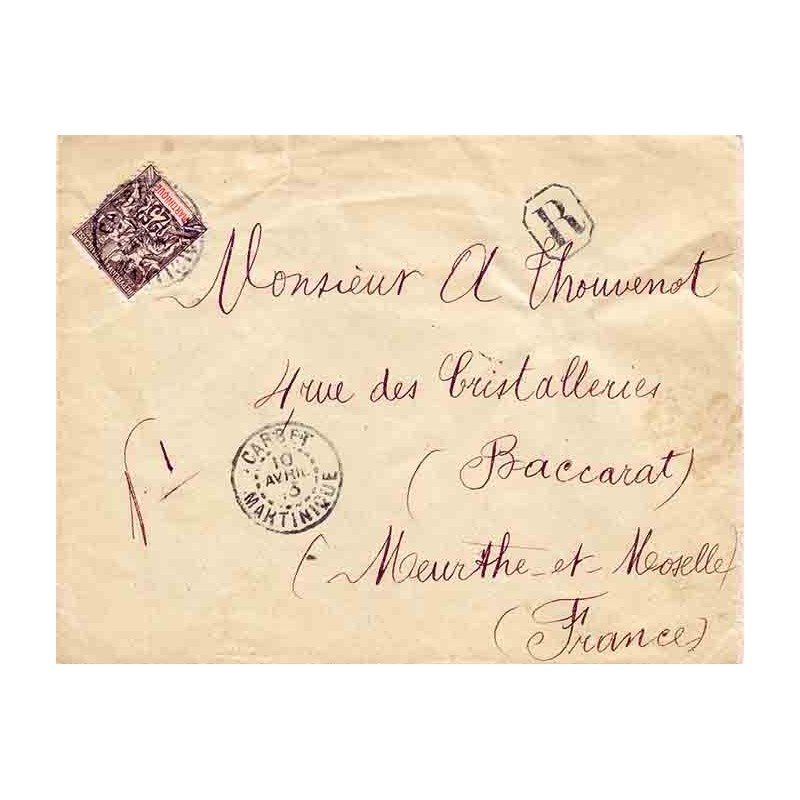 MARTINIQUE
R
Monsieur A Thouvenot
4 rue des Cristalleries
CARBET
10
AVRIL
MARTINIQUE
1
( Baccarat)
( Meurthe-et-Moselle)
(France)